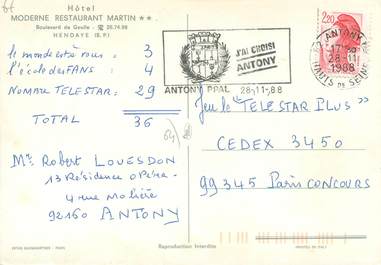 Hôtel
MODERNE RESTAURANT MARTIN **
Boulevard de Gaulle - ☎ 20.74.98
HENDAYE (B.P.)
le monde est à vous : 3
l'école des FANS : 4
NOMBRE TELESTAR: 29
TOTAL 36
Mr. Robert LOUESDON
13 Résidence OPéra -
4 rue Molière
92160 ANTONY
J'AI CHOISI
ANTONY
ANTONY PPAL 28-11-88
2,20
ANTONY PPAL
17H
28-11
1988
HAUTS DE SEINE
Jeu de "TELESTAR PLUS"
CEDEX 3450
99345 Paris CONCOURS
Reproduction Interdite